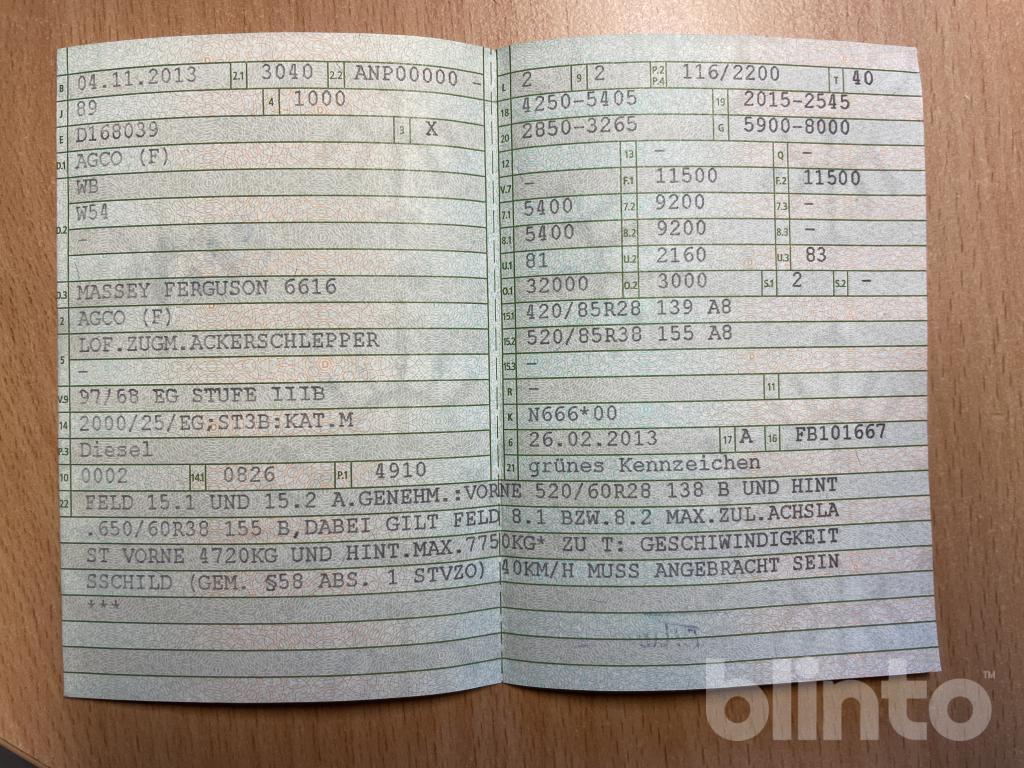 B 04.11.2013 2.1 3040 2.2 ANP00000 -
J 89 4 1000
E D168039 3 X
D.1 AGCO (F)
WB
D.2 W54
-
D.3 MASSEY FERGUSON 6616
2 AGCO (F)
5 LOF.ZUGM.ACKERSCHLEPPER
-
V.9 97/68 EG STUFE IIIB
14 2000/25/EG;ST3B:KAT.M
P.3 Diesel
10 0002 14.1 0826 P.1 4910
L 2 9 2 P.2 P.4 116/2200 T 40
18 4250-5405 19 2015-2545
20 2850-3265 G 5900-8000
12 13 - Q -
V.7 - F.1 11500 F.2 11500
7.1 5400 7.2 9200 7.3 -
8.1 5400 8.2 9200 8.3 -
U.1 81 U.2 2160 U.3 83
O.1 32000 O.2 3000 S.1 2 S.2 -
15.1 420/85R28 139 A8
15.2 520/85R38 155 A8
15.3 -
R - 11
K N666*00
6 26.02.2013 17 A 16 FB101667
21 grünes Kennzeichen
22 FELD 15.1 UND 15.2 A.GENEHM.:VORNE 520/60R28 138 B UND HINT
.650/60R38 155 B,DABEI GILT FELD 8.1 BZW.8.2 MAX.ZUL.ACHSLA
ST VORNE 4720KG UND HINT.MAX.7750KG* ZU T: GESCHIWINDIGKEIT
SSCHILD (GEM. §58 ABS. 1 STVZO) 40KM/H MUSS ANGEBRACHT SEIN
***
blinto™